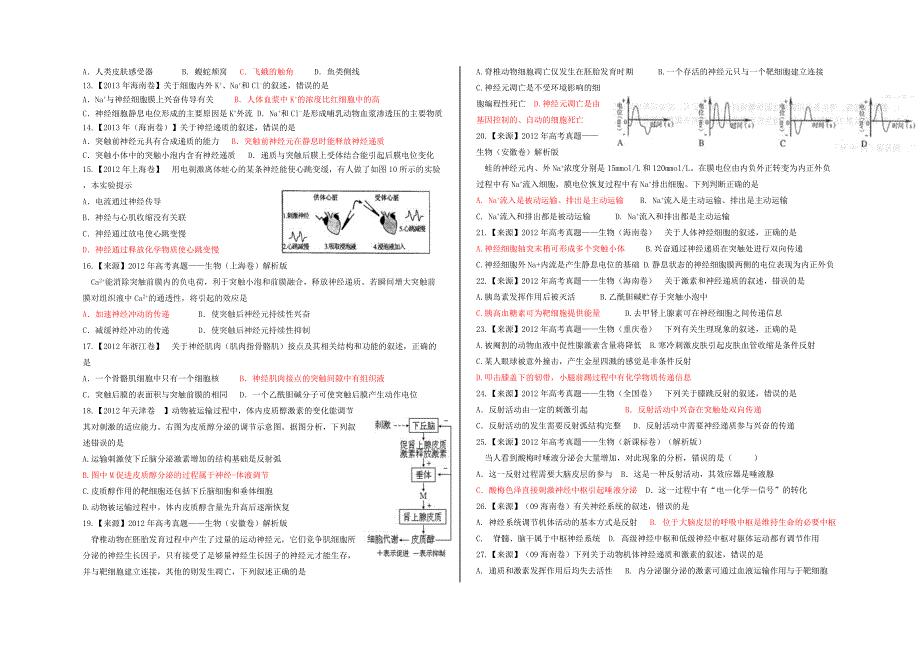 A．人类皮肤感受器 B. 蝮蛇颊窝 C. 飞蛾的触角 D. 鱼类侧线
13.【2013年海南卷】关于细胞内外K⁺、Na⁺和Cl⁻的叙述，错误的是
A．Na⁺与神经细胞膜上兴奋传导有关 B. 人体血浆中K⁺的浓度比红细胞中的高
C．神经细胞静息电位形成的主要原因是K⁺外流 D．Na⁺和Cl⁻是形成哺乳动物血浆渗透压的主要物质
14.【2013年（海南卷）】关于神经递质的叙述，错误的是
A．突触前神经元具有合成递质的能力 B．突触前神经元在静息时能释放神经递质
C．突触小体中的突触小泡内含有神经递质 D. 递质与突触后膜上受体结合能引起后膜电位变化
15.【2012年上海卷】 用电刺激离体蛙心的某条神经能使心跳变缓，有人做了如图10所示的实验
，本实验提示
A．电流通过神经传导
B．神经与心肌收缩没有关联
C．神经通过放电使心跳变慢
D．神经通过释放化学物质使心跳变慢
供体心脏 受体心脏
1.刺激神经
2.心跳减慢 3.吸取浸泡液 4.浸泡液加入 5.心跳减慢
16.【来源】2012年高考真题——生物（上海卷）解析版
Ca²⁺能消除突触前膜内的负电荷，利于突触小泡和前膜融合，释放神经递质。若瞬间增大突触前
膜对组织液中Ca²⁺的通透性，将引起的效应是
A．加速神经冲动的传递 B．使突触后神经元持续性兴奋
C．减缓神经冲动的传递 D．使突触后神经元持续性抑制
17.【2012年浙江卷】 关于神经肌肉（肌肉指骨骼肌）接点及其相关结构和功能的叙述，正确的
是
A．一个骨骼肌细胞中只有一个细胞核 B．神经肌肉接点的突触间隙中有组织液
C．突触后膜的表面积与突触前膜的相同 D．一个乙酰胆碱分子可使突触后膜产生动作电位
18.【2012年天津卷 】动物被运输过程中，体内皮质醇激素的变化能调节
其对刺激的适应能力。右图为皮质醇分泌的调节示意图。据图分析，下列叙
述错误的是
A.运输刺激使下丘脑分泌激素增加的结构基础是反射弧
B.图中M促进皮质醇分泌的过程属于神经-体液调节
C.皮质醇作用的靶细胞还包括下丘脑细胞和垂体细胞
D.动物被运输过程中，体内皮质醇含量先升高后逐渐恢复
刺激 下丘脑
促肾上腺皮质
激素释放激素
+
垂体
M
肾上腺皮质
细胞代谢 皮质醇
＋表示促进 －表示抑制
19.【来源】2012年高考真题——生物（安徽卷）解析版
脊椎动物在胚胎发育过程中产生了过量的运动神经元，它们竞争肌细胞所
分泌的神经生长因子，只有接受了足够量神经生长因子的神经元才能生存，
并与靶细胞建立连接，其他的则发生凋亡，下列叙述正确的是
A.脊椎动物细胞凋亡仅发生在胚胎发育时期 B.一个存活的神经元只与一个靶细胞建立连接
C.神经元凋亡是不受环境影响的细
胞编程性死亡 D.神经元凋亡是由
基因控制的、自动的细胞死亡
时间(s) 时间(s) 时间(s) 时间(s)
A B C D
20.【来源】2012年高考真题——
生物（安徽卷）解析版
蛙的神经元内、外Na⁺浓度分别是15mmol/L和120mmol/L。在膜电位由内负外正转变为内正外负
过程中有Na⁺流入细胞，膜电位恢复过程中有Na⁺排出细胞。下列判断正确的是
A. Na⁺流入是被动运输、排出是主动运输 B. Na⁺流入是主动运输、排出是主动运输
C. Na⁺流入和排出都是被动运输 D. Na⁺流入和排出都是主动运输
21.【来源】2012年高考真题——生物（海南卷） 关于人体神经细胞的叙述，正确的是
A.神经细胞轴突末梢可形成多个突触小体 B.兴奋通过神经递质在突触处进行双向传递
C.神经细胞外Na+内流是产生静息电位的基础 D.静息状态的神经细胞膜两侧的电位表现为内正外负
22.【来源】2012年高考真题——生物（海南卷） 关于激素和神经递质的叙述，错误的是
A.胰岛素发挥作用后被灭活 B.乙酰胆碱贮存于突触小泡中
C.胰高血糖素可为靶细胞提供能量 D.去甲肾上腺素可在神经细胞之间传递信息
23.【来源】2012年高考真题——生物（重庆卷） 下列有关生理现象的叙述，正确的是
A.被阉割的动物血液中促性腺激素含量将降低 B.寒冷刺激皮肤引起皮肤血管收缩是条件反射
C.某人眼球被意外撞击，产生金星四溅的感觉是非条件反射
D.叩击膝盖下的韧带，小腿前踢过程中有化学物质传递信息
24.【来源】2012年高考真题——生物（全国卷） 下列关于膝跳反射的叙述，错误的是
A．反射活动由一定的刺激引起 B．反射活动中兴奋在突触处双向传递
C．反射活动的发生需要反射弧结构完整 D．反射活动中需要神经递质参与兴奋的传递
25.【来源】2012年高考真题——生物（新课标卷）（解析版）
当人看到酸梅时唾液分泌会大量增加，对此现象的分析，错误的是（ ）
A．这一反射过程需要大脑皮层的参与 B．这是一种反射活动，其效应器是唾液腺
C．酸梅色泽直接刺激神经中枢引起唾液分泌 D．这一过程中有“电—化学—信号”的转化
26.【来源】（09海南卷）有关神经系统的叙述，错误的是
A. 神经系统调节机体活动的基本方式是反射 B. 位于大脑皮层的呼吸中枢是维持生命的必要中枢
C. 脊髓、脑干属于中枢神经系统 D. 高级神经中枢和低级神经中枢对躯体运动都有调节作用
27.【来源】（09海南卷）下列关于动物机体神经递质和激素的叙述，错误的是
A. 递质和激素发挥作用后均失去活性 B. 内分泌腺分泌的激素可通过血液运输作用与于靶细胞